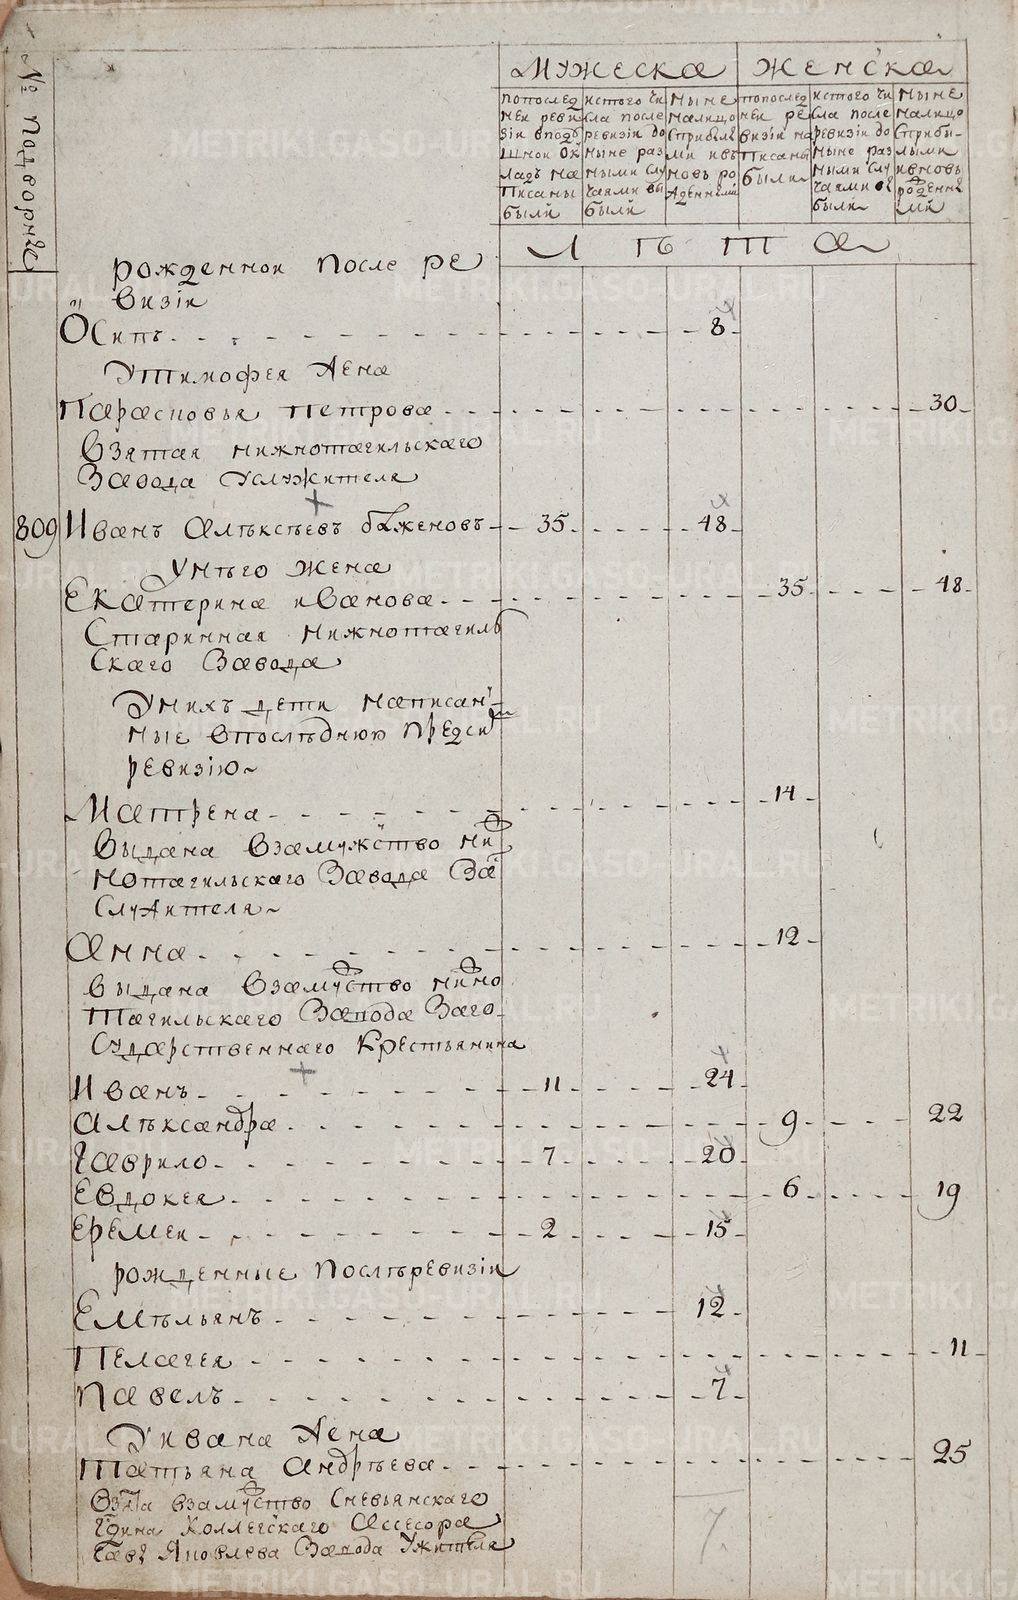 METRIKI.GASO-URAL.RU
№ Подворные
Мужеска Женска
попослед неи реви зіи вподу шнои ок ладъ на писаны были
истого чи сла после ревизіи до ныне раз ными слу чаями вы были
ныне налицо сприбылы ми ивъ новъ ро жденными
попослед неи ре визіи на писаны были
истого чи сла после ревизіи до ныне раз ными слу чаями вы были
ныне налицо сприбы лыми ивновь рожденны ми
Лѣта
рожденнои после ре
визіи
Осипъ 8
Утимофея жена
Парасковья Петрова 30
Взятая нижнотагильскаго
Завода служителя
809 Иванъ Алѣксѣевъ баженовъ 35 48
Унѣго жена
Екатерина иванова 35 48
Старинная нижнотагиль
скаго Завода
Унихъ дети написан
ные впослѣднюю предси
ревизію
Матрена 14
Выдана Взамужство ни
нотагильскаго Завода За
служителя
Анна 12
выдана Взамуство нижно
тагильскаго Завода Заго
сударственнаго Крестьянина
Иванъ 11 24
Алѣксандра 9 22
Гаврило 7 20
Евдокея 6 19
Еремеи 2 15
рожденные послѣревизіи
Емѣльянъ 12
Пелагея 11
Павелъ 7
Уивана жена
Татьяна Андрѣева 25
Взята взамуство Сневьянскаго
Гдина Коллегскаго Асесора
Яковлева Завода
7.